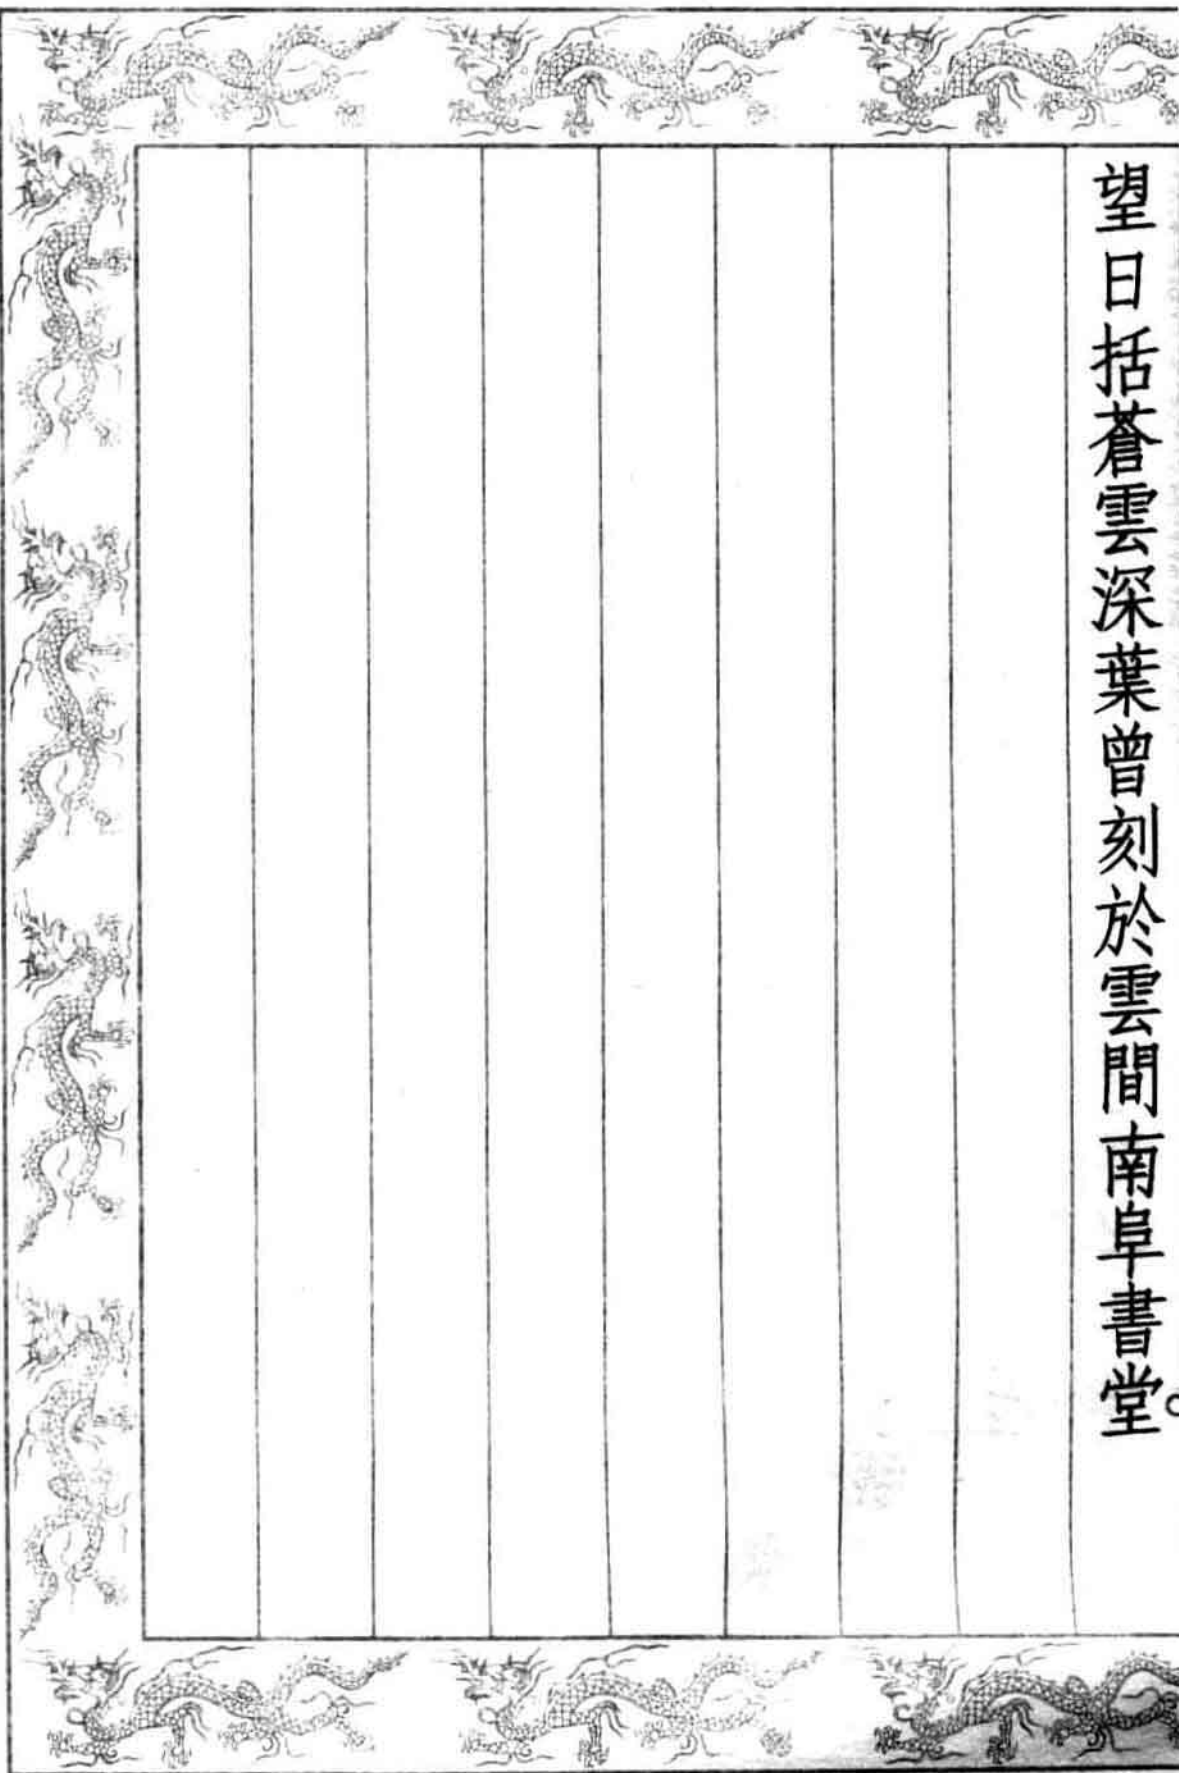 望日括蒼雲深葉曾刻於雲間南阜書堂。